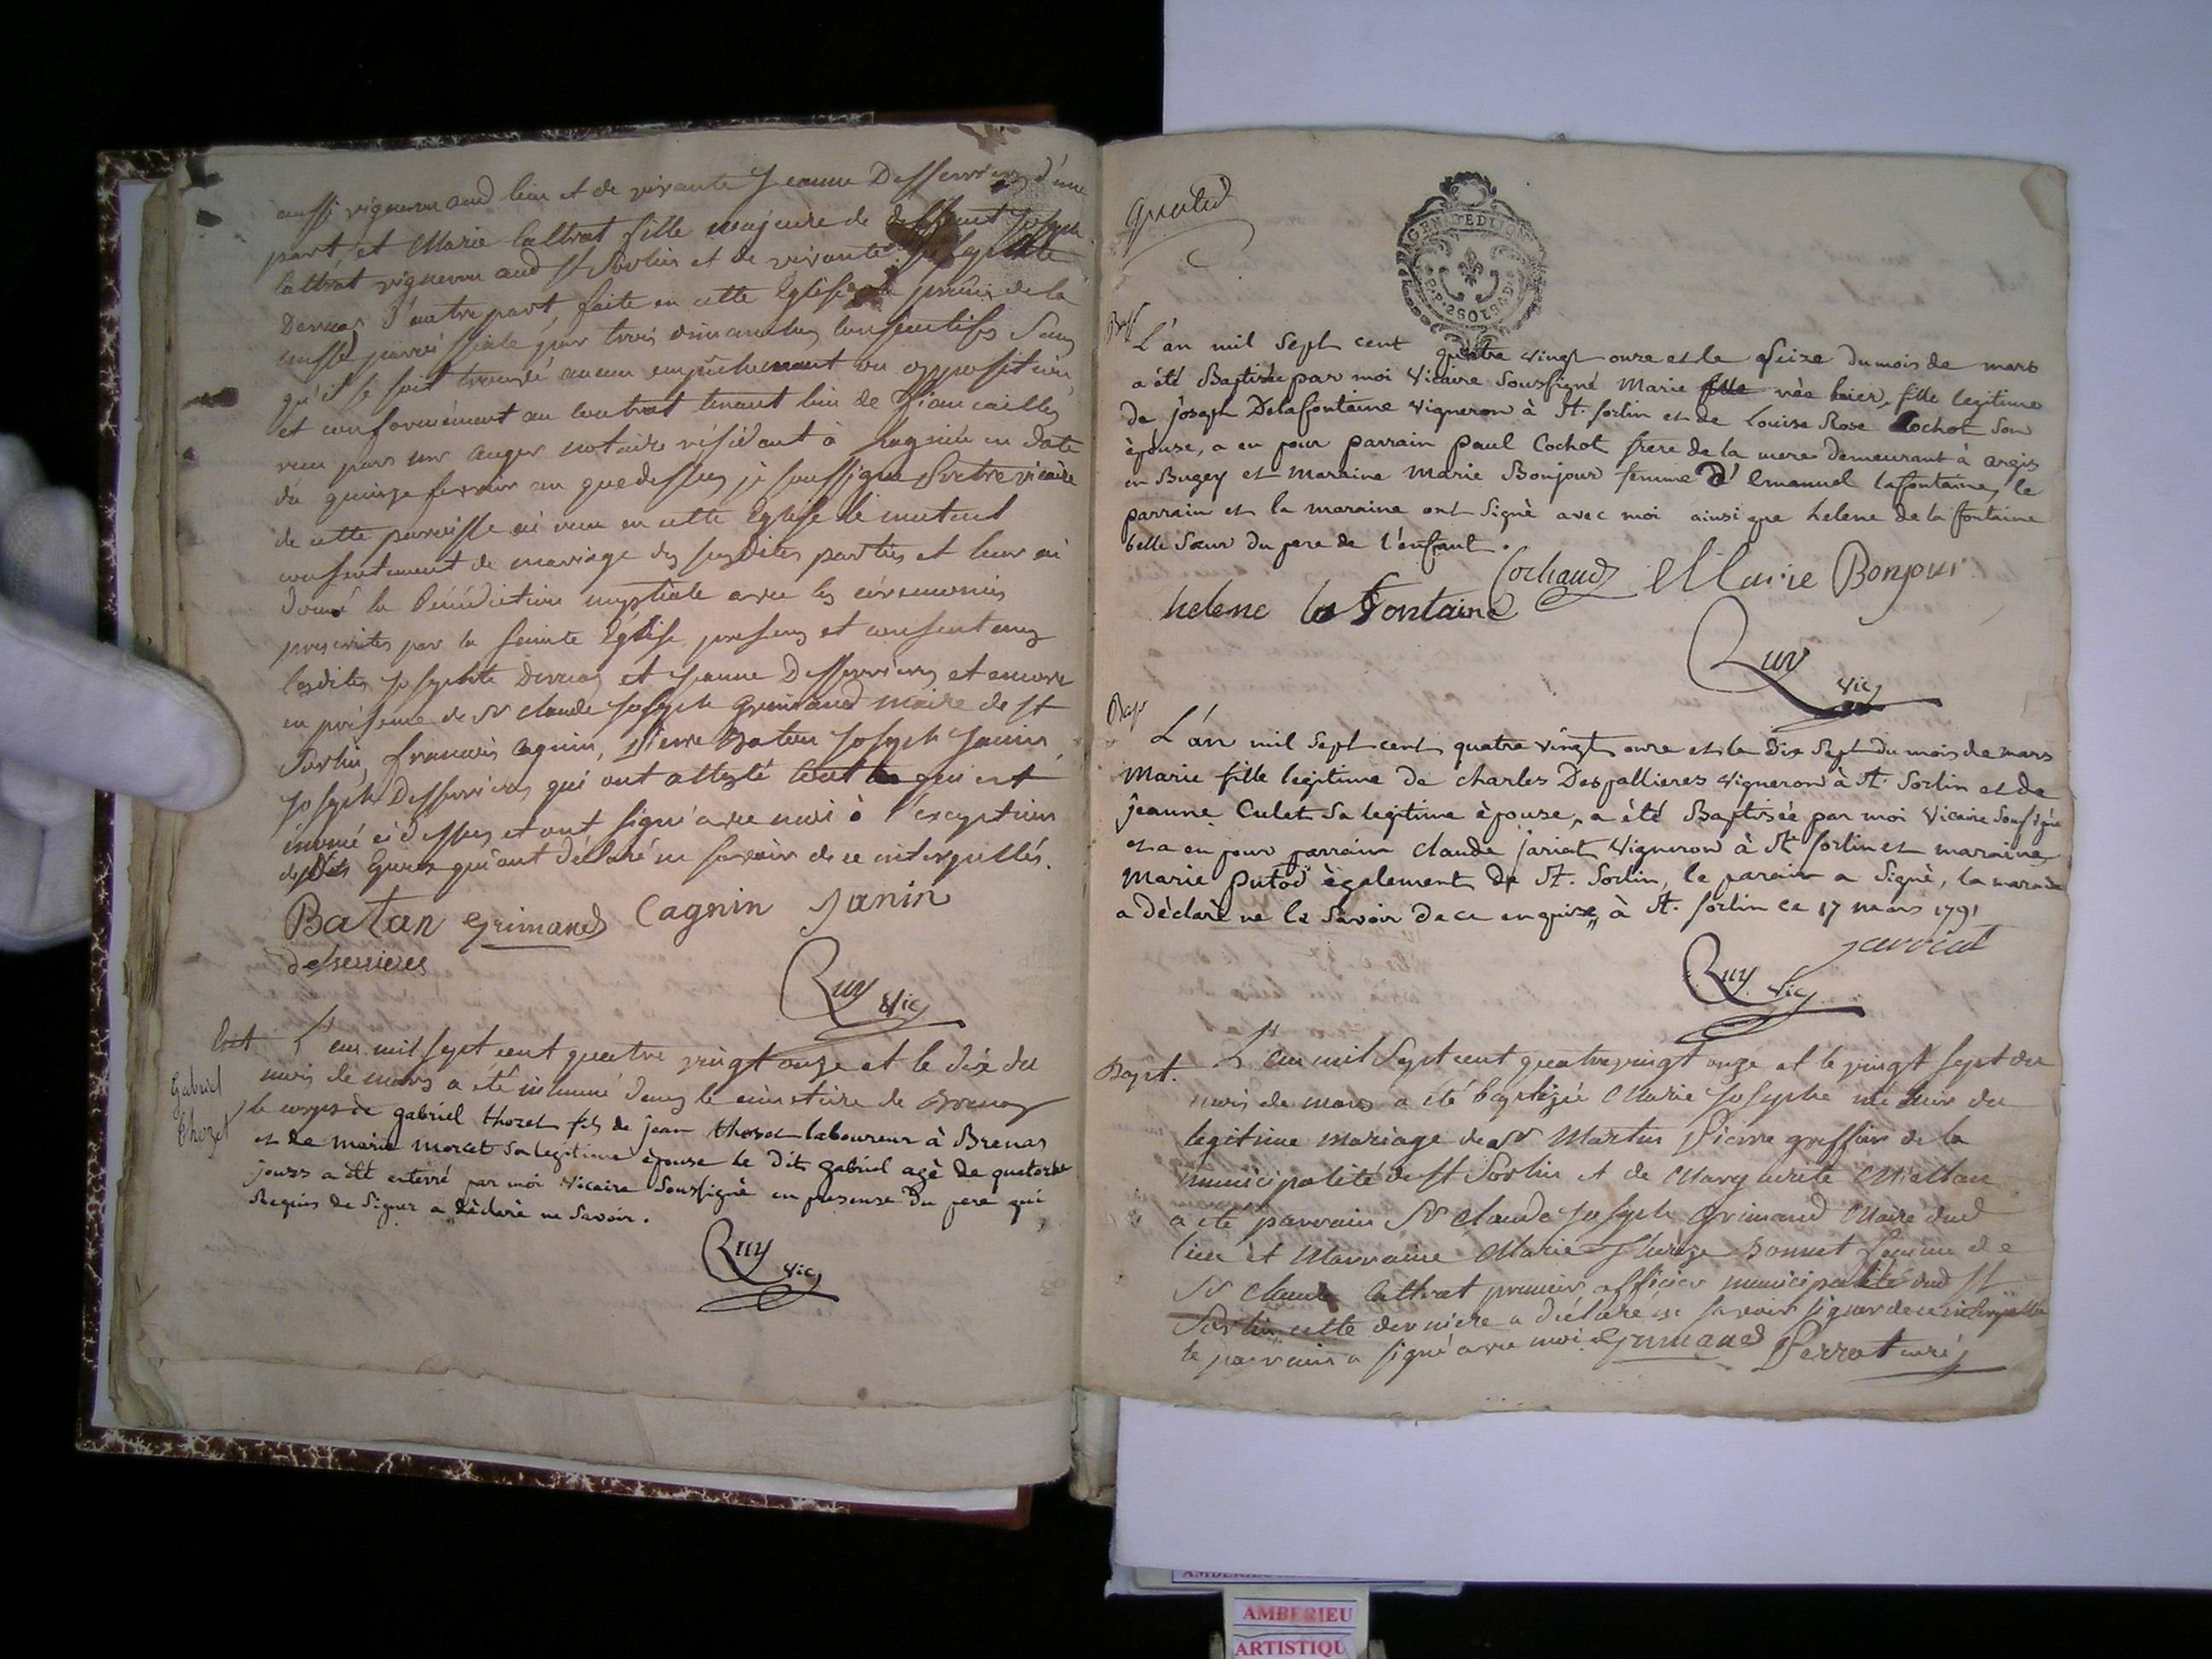 aussi vigneron aud lieu et de vivante Jeanne Desserrieres d'une
part, et Marie lattrat fille majeure de deffunt Joseph
lattrat vigneron aud St Sorlin et de vivante Josephte
Dervas d'autre part, faite en cette Eglise prône de la
messe parroissiale par trois dimanches consécutifs sans
qu'il se soit trouvé aucun empêchement ou opposition,
et conformément au contrat tenant lieu de fiancailles
reçu par me auger notaire résidant à lagnieu en date
du quinze fevrier an que dessus, je soussigné Prêtre vicaire
de cette parroisse ai reçu en cette Eglise le mutuel
consentement de mariage des susdites parties et leur ai
donné la bénédiction nuptiale avec les cérémonies
prescrites par la sainte Eglise, presens et consentans
lesdites Josephte Dervas et Jeanne Desserrieres et encore
en présence de Sr claude Joseph Grimaud Maire de St
Sorlin, francois Cagnin, Pierre Batan Joseph Janin,
Joseph Desserrieres qui ont attesté tout ce qui est
énoncé ci dessus et ont signé avec moi à l'exception
desdits qui ont déclaré ne savoir de ce interpellés.
Batan Grimaud Cagnin Janin
desserieres
Ruy vic
L'an mil sept cent quatre vingt onze et le dix du
mois de mars a été inhumé dans le cimetière de Brenas
Gabriel
thozet
le corps de gabriel thozet fils de jean thozet laboureur à Brenas
et de marie morcet Sa legitime èpouse le dit gabriel agè de quatorze
jours a été enterré par moi vicaire Soussignè en presense du pere qui
Requis de Signer a dèclarè ne Savoir.
Ruy vic
GEN DE DIJON
2 SOLS 8 D
Bapt
L'an mil Sept cent quatre vingt onze et le Seize du mois de mars
a été Baptisée par moi Vicaire Soussigné Marie fille née hier, fille legitime
de joseph Delafontaine Vigneron à St. sorlin et de Louise Rose Cochot son
èpouse, a eu pour parrain paul Cochot frere de la mere demeurant à argis
en Bugey et Maraine Marie Bonjour femme d' Emanuel lafontaine, le
parrain et la maraine ont Signè avec moi ainsi que helene de la fontaine
belle Sœur du pere de l'enfant.
Cochaud Marie Bonjour
helene la fontaine
Ruy
vic
Bapt
L'an mil Sept cent quatre vingt onze et le Dix Sept du mois de mars
Marie fille legitime de charles Despallieres vigneron à St. Sorlin et de
jeanne Culet Sa legitime èpouse, a été Baptisée par moi Vicaire Soussignè
et a eu pour parrain claude jariat Vigneron à St sorlin et maraine
Marie putod ègalement de St. Sorlin, le parain a Signè, la maraine
a dèclarè ne le Savoir de ce enquise, à St. sorlin ce 17 mars 1791
Ruy vic
Bapt.
L'an mil Sept cent quatrevingt onze et le vingt sept du
mois de mars a été baptizée Marie Josephe née hier du
legitime mariage de Sr Martin Pierre greffier de la
municipalité de St Sorlin et de Marguerite
a été parrain Sr claude Joseph Grimaud Maire dud
lieu et Marraine Marie Thereze Bonnet femme de
Sr claude lattrat premier officier municipalité dud St
Sorlin, cette derniere a déclaré ne savoir signer de ce interpellée
le parrain a signé avec moi Grimaud Perrat curé
AMBERIEU
ARTISTIQU